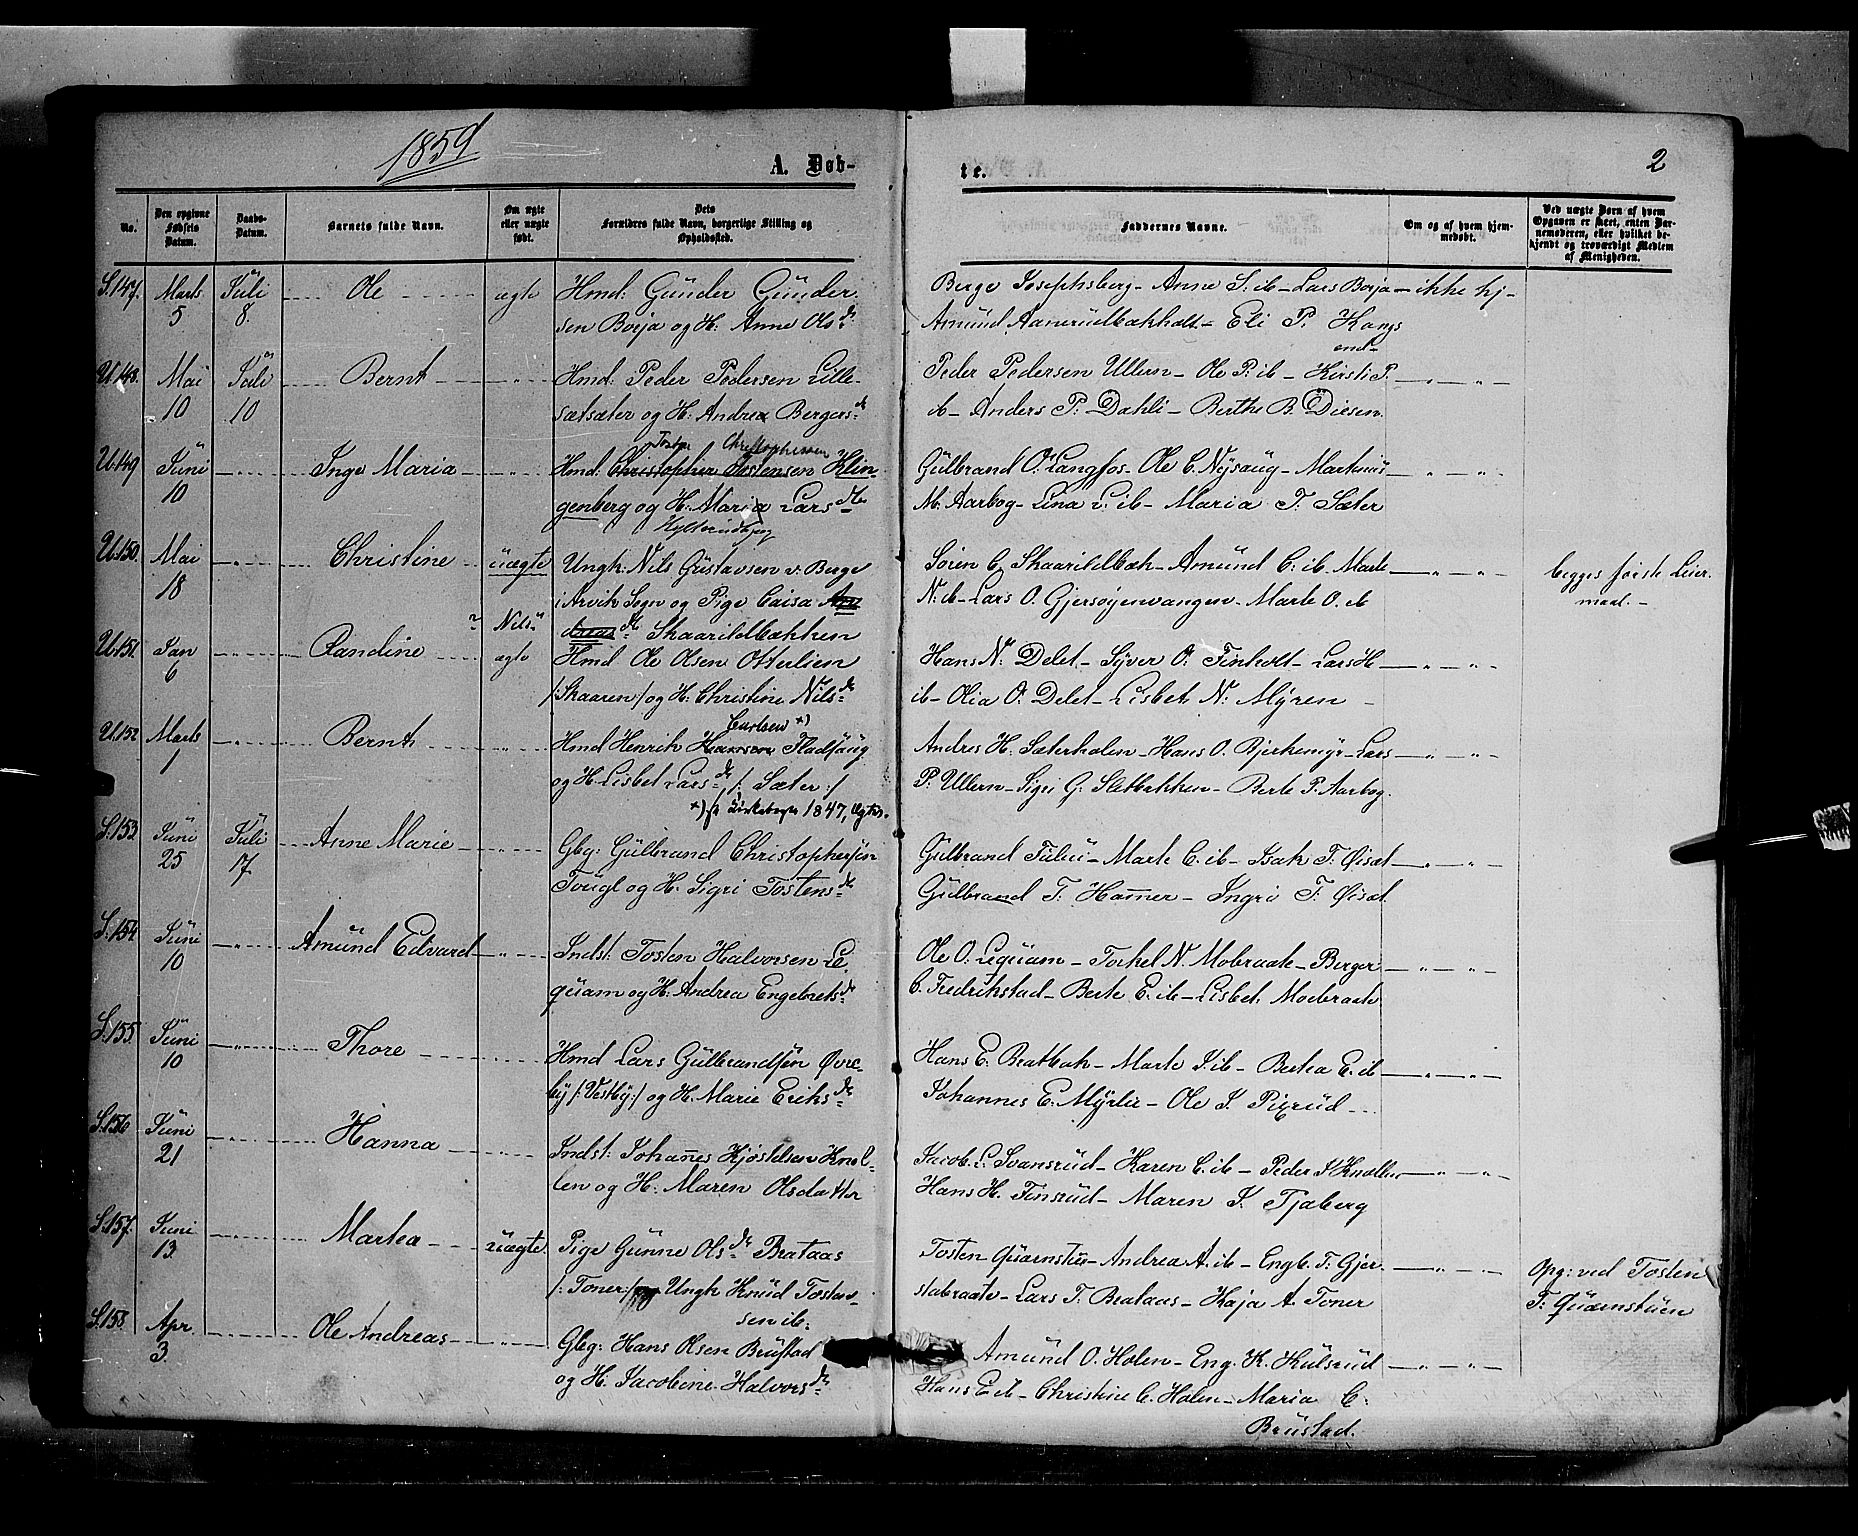 1859
A. Døb-
te.
2
No.
Den opgivne Fødsels Datum.
Daabs-Datum.
Barnets fulde Navn.
Om ægte eller uægte født.
Dets Forældres fulde Navn, borgerlige Stilling og Opholdssted.
Faddernes Navne.
Om og af hvem hjem-medøbt.
Ved uægte Børn af hvem Opgaven er skeet, enten Bar-nemoderen, eller hvilket be-kjendt og troværdigt Medlem af Menigheden.
S.147. Marts 5 Juli 8. Ole ægte Hmd: Gunder Gunder-
sen Borja og H: Anne Olsd:
Berge Josephsberg - Anne S. ib - Lars Borja - ikke hj-
Amund Aamrudbækholt - Eli P. Hangs
end-
Ul.148. Mai 10 Juli 10 Bernt - " - Hmd: Peder Pedersen Lille-
sætsæter og H: Andrea Bergersd:
Peder Pedersen Ullern - Ole P. ib - Kirsti P. - " - " -
ib - Anders P. Dahli - Berthe B. Diesen.
Tosten Christophersen
Ul.149 Juni 10 - " - Inge Maria - " - Hmd: Christopher Tostensen Klin-
genberg og H: Maria Larsdtr
Gulbrand O. Langfos - Ole C. Nysaug - Martinus - " - " -
M. Aarbog - Lina L. ib - Maria T. Sæter
Ul.150. Mai 18 - " - Christine uægte Ungk: Nils Gustavsen v: Berge
i Arvik Sogn og Pige Caisa An-
Nils dreasdtr Skaarildbækken
Søren C. Skaarildbæk - Amund C. ib. Marte - " - " - begges første Leier-
N. ib - Lars O. Gjersøyenvangen - Marte O. ib maal. -
Ul.151. Jan 6 - " - Randine ægte Hmd Ole Olsen Otterlien
/: Skaaren :/ og H: Christine Nilsd:
Hans N: Delet - Syver O. Finholt - Lars H - " - " -
ib - Olia O. Delet - Lisbet N: Myren -
Carlsen *)
Ul.152 Marts 1 - " - Bernt " Hmd Henrik Hansen Fladsaug
og H. Lisbet Larsd: /: Sæter :/
*) se Kirkebogen 1847, Ægtev.
Andres H. Sæterholen - Hans O. Bjerkemyr - Lars - " - " -
P. Ullern - Sigri G. Sletbakken - Berte P. Aarbog.
S.153 Juni 25 Juli 17. Anne Marie - " - Gbg: Gulbrand Christophersen
Tougl og H. Sigri Tostensd:
Gulbrand Tulu - Marte C. ib - Isak T. Øisæt - " - " -
Gulbrand T. Hamer - Ingri T. Øisæt.
S.154 Juni 10 - " - Amund Edvard - " - Indst: Tosten Halvorsen Le-
quam og H. Andrea Engebretsd:
Ole O. Lequam - Torkel N. Mobraate - Berger - " - " -
C. Fredrikstad - Berte E. ib - Lisbet Mobraate
S.155. Juni 10 - " - Thore - " - Hmd Lars Gulbrandsen Øvre-
by /: Vestby :/ og H. Marie Eriksd:
Hans E. Bratbak - Marte J. ib - Bertea E. ib - " - " -
Johannes E. Myrlie - Ole J. Pigrud -
S.156 Juni 21 - " - Hanna - " - Indst: Johannes Kjøstelsen Knol-
len og H: Maren Olsdatter
Jacob L. Svansrud - Karen C. ib - Peder J. Knollen - " - " -
Hans H. Finsrud - Maren J. Tjaberg
S.157. Juni 13. - " - Martea uægte Pige Gunne Olsd: Brataas
/: Toner :/ og Ungk Knud Tosten-
sen ib.
Tosten Quarnstu - Andrea A. ib - Engb. T. Gjer - " - " - Opg: ved Tosten
stabraate - Lars T. Brataas - Kaja A. Toner T: Quarnstuen
S.158 Apr. 3. - " - Ole Andreas - " - Gbg: Hans Olsen Brustad
og H. Jacobine Halvorsd:
Amund O. Holen - Eng. K. Kulsrud - " - " -
Hans E. ib - Christine C. Holen - Maria C.
Brustad.